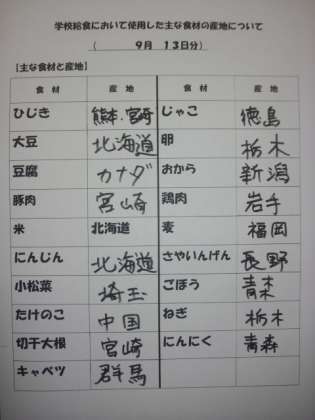 学校給食において使用した主な食材の産地について
( 9月 13日分)
【主な食材と産地】
食材 産地 食材 産地
ひじき 熊本・宮崎 じゃこ 徳島
大豆 北海道 卵 栃木
豆腐 カナダ おから 新潟
豚肉 宮崎 鶏肉 岩手
米 北海道 麦 福岡
にんじん 北海道 さやいんげん 長野
小松菜 埼玉 ごぼう 青森
たけのこ 中国 ねぎ 栃木
切干大根 宮崎 にんにく 青森
キャベツ 群馬